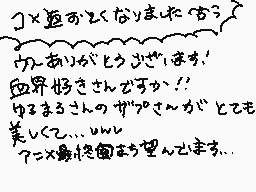 コメ返おそくなりました(汚う
ウハありがとうございます!
血界好きさんですか!!
ゆるまるさんのザプさんがとても
美しくて...uωu
アニメ最終回まち望んでいます...